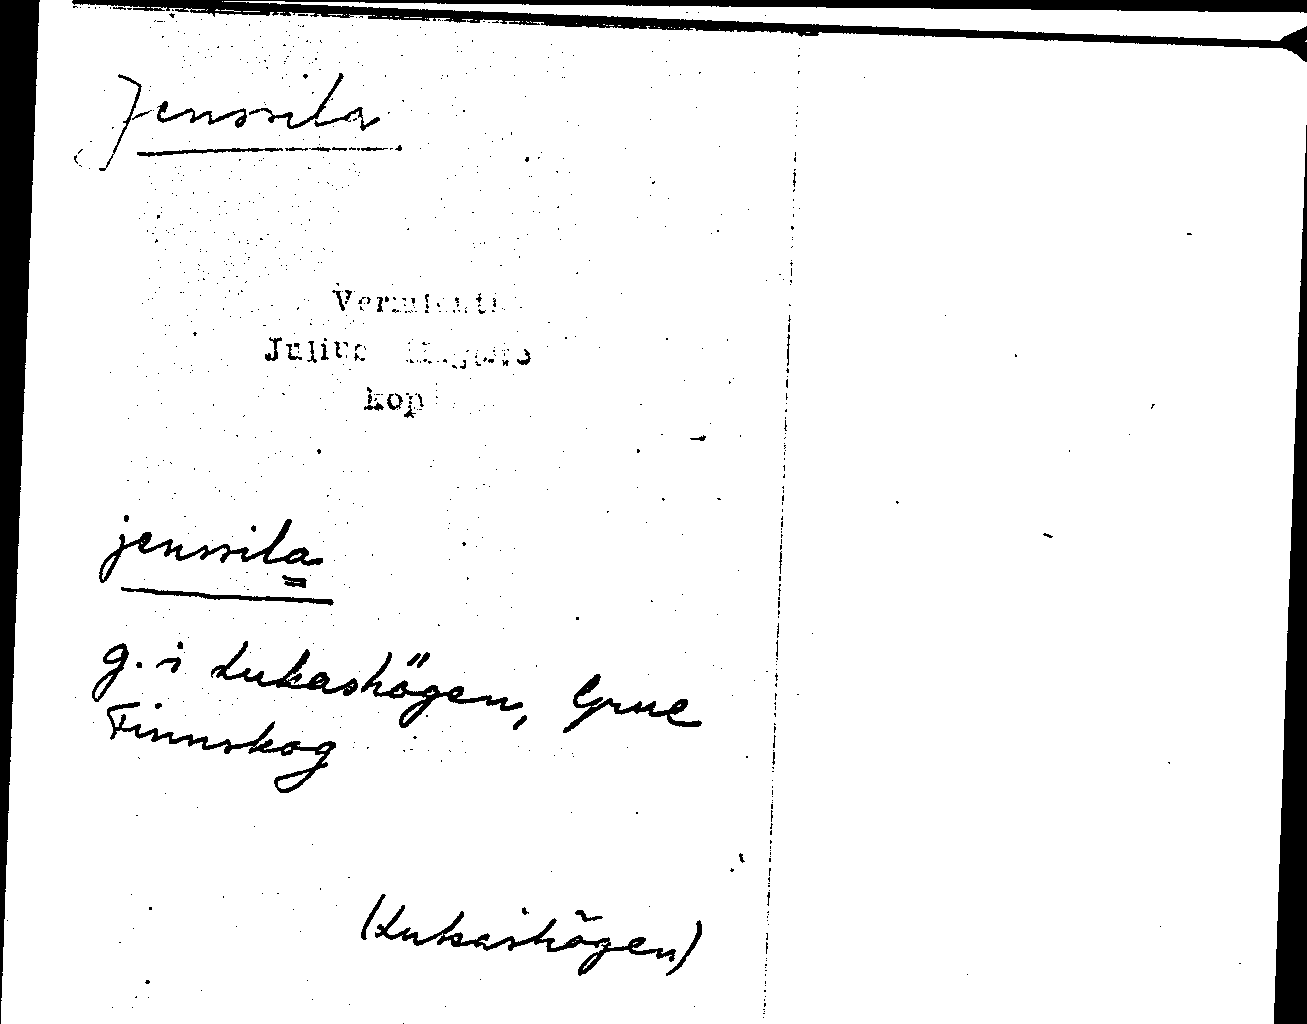 Jenssila
Vermlanti
Julius Mägiste
kop
jenssila
g. i Lukashögen, Grue
Finnskog
(Lukashögen)